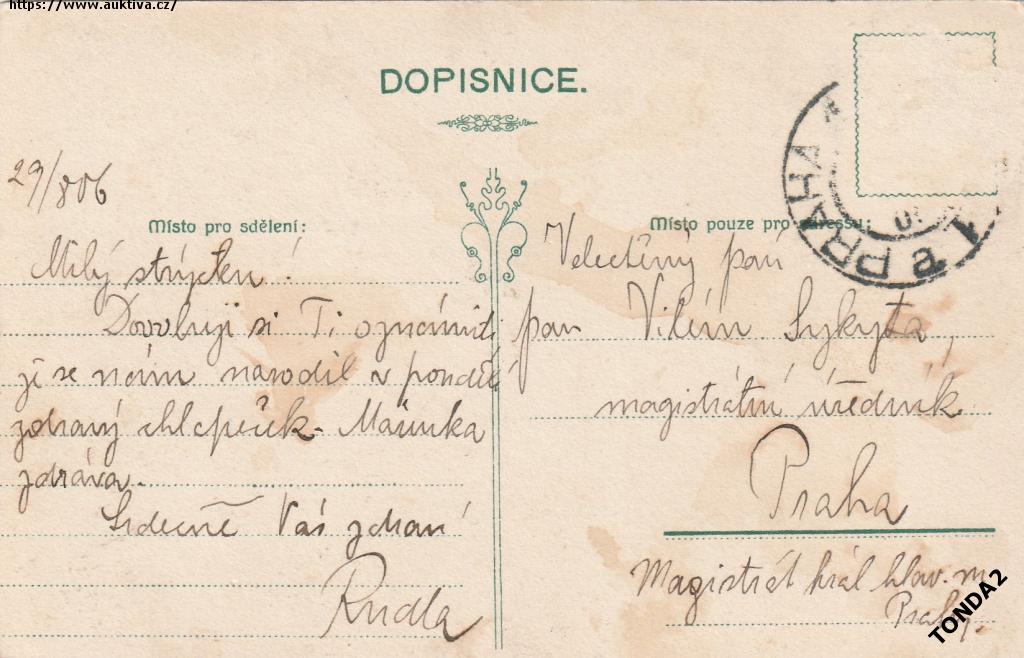 https://www.auktiva.cz/
DOPISNICE.
29/8 06
Místo pro sdělení:
Milý strýčku!
Dovoluji si Ti oznámiti
že se nám narodil v pondělí
zdravý chlapeček. Mařenka
zdráva.
Srdečně Vás zdraví
Rudla
Místo pouze pro adressu:
PRAHA 1
Velectěný pán
pan Vilém Sykyta,
magistrátní úředník
Praha
Magistrát král. hlav. m.
Prahy.
TONDA2